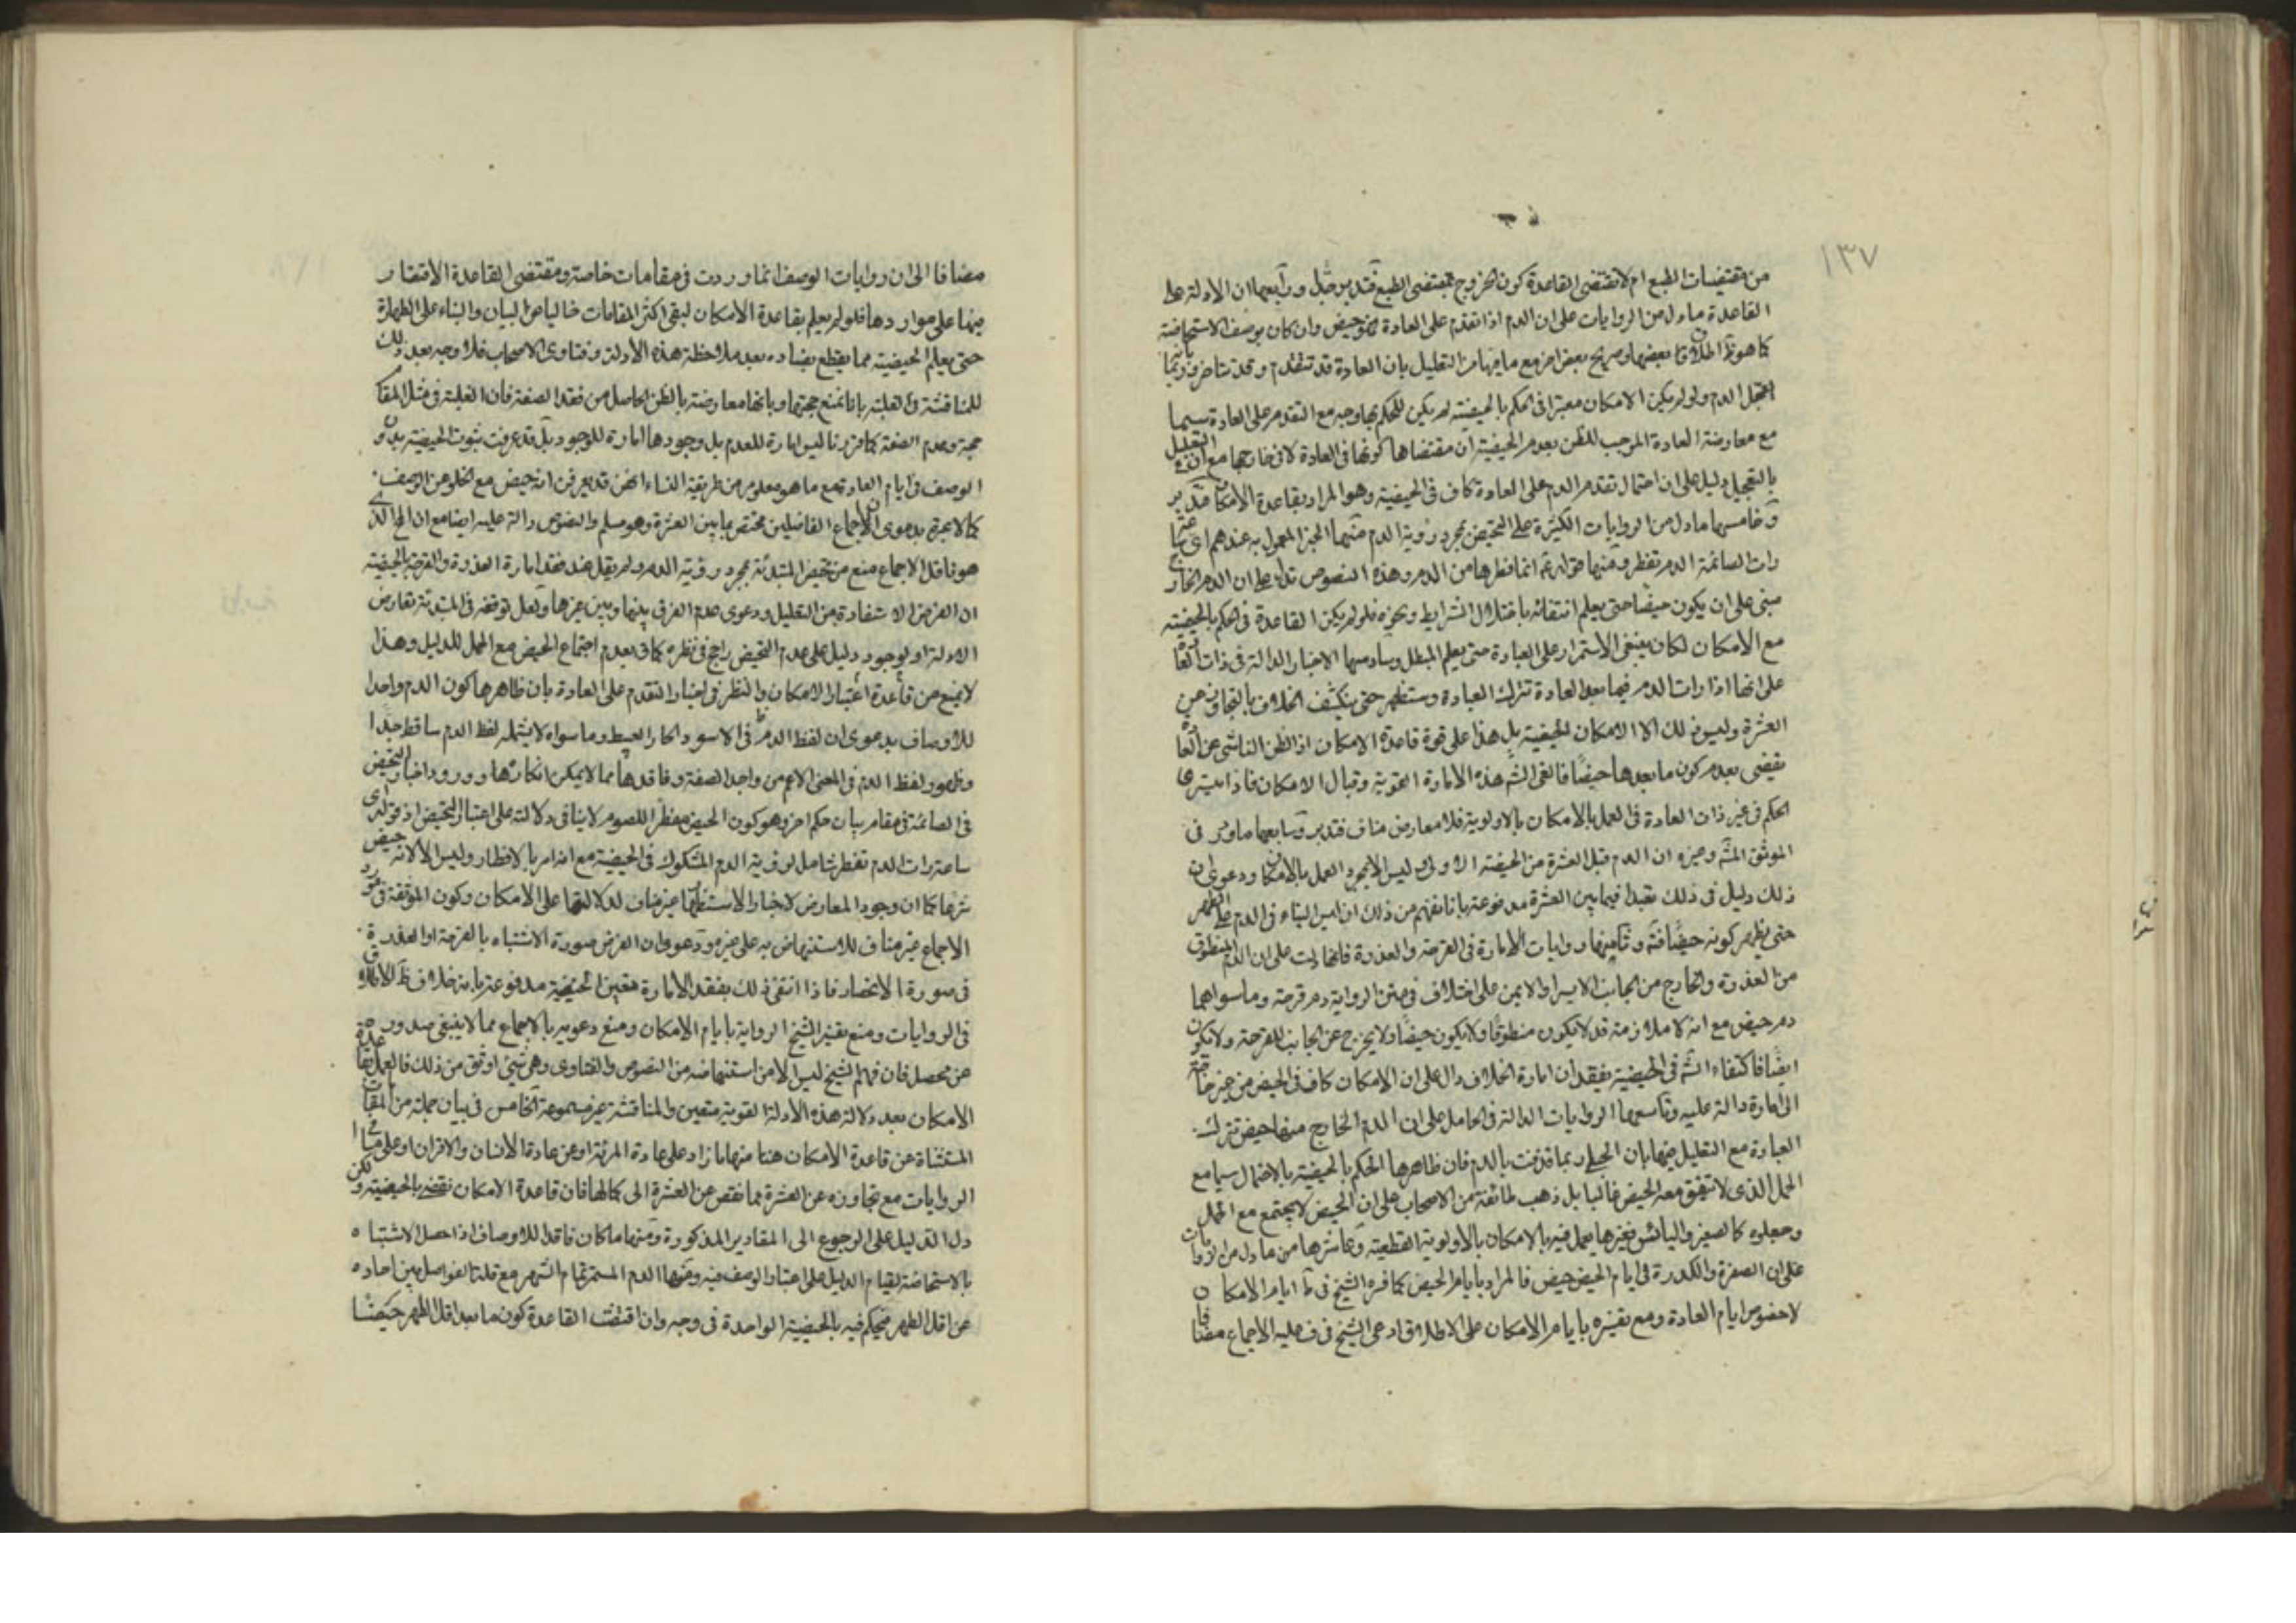 ١٣٧
من مقتضيات الطبع ام لا تقتضي القاعدة كون الخروج بمقتضى الطبع فتدبر جدا ورابعها ان الادلة على
القاعدة ما دل من الروايات على ان الدم اذا تقدم على العادة فهو حيض وان كان بوصف الاستحاضة
كما هو ظ اطلاق بعضها وصريح بعض اخر مع ما فيها من التعليل بان العادة قد تتقدم وقد تتاخر وربما
تعجل الدم ولو لم يكن الامكان معتبرا في الحكم بالحيضية لم يكن للحكم بها وجه مع التقدم على العادة سيما
مع معارضة العادة الموجب للظن بعدم الحيضية ان مقتضاها كونها في العادة لا في خارجها مع ان التعليل
بالتعجيل دليل على ان احتمال تقدم الدم على العادة كاف في الحيضية وهو المراد بقاعدة الامكان فتدبر
وخامسها ما دل من الروايات الكثيرة على التحيض بمجرد رؤية الدم منها الخبر المعمول به عندهم اي ساعة
رات الصائمة الدم تفطر ومنها قوله ع انما فطرها من الدم وهذه النصوص تدل على ان الدم الخارج
مبنى على ان يكون حيضا حتى يعلم انتفائه باختلال الشرايط ونحوه فلو لم يكن القاعدة في الحكم بالحيضية
مع الامكان لكان ينبغي الاستمرار على العبادة حتى يعلم المبطل وسادسها الاخبار الدالة في ذات
على انها اذا رات الدم فيما بعد العادة تترك العبادة وستظهر حتى ينكشف الخلاف بالتجاوز عن
العشرة وليس ذلك الا الامكان الحيضية بل هذا على قوة قاعدة الامكان اذ الظن الناشي عن
يقضي بعدم كون ما بعدها حيضا فالغى الش هذه الامارة القوية وقبال الامكان فاذا
الحكم في غير ذات العادة في العمل بالامكان بالاولوية فلا معارض مناف فتدبر وسابعها ما ورد في
الموثق المش وغيره ان الدم قبل العشرة من الحيضة الاولى ليس الا بمجرد العمل بالامكان ودعوى ان
ذلك دليل في ذلك تعبدا فيما بين العشرة مدفوعة بانا نفهم من ذلك ان ليس البناء في الدم على الطهر
حتى يظهر كونه حيضا فته وثامنها روايات الامارة في القرحة والعذرة فانها دلت على ان الدم المنطوق
من العذرة والخارج من الجانب الايسر او الايمن على اختلاف في متن الرواية دم قرحة وما سواهما
دم حيض مع انه لا ملازمة قد لا يكون منطوقا ولا يكون حيضا ولا يخرج عن الجانب للقرحة ولا يكون
ايضا فاكتفاء الش في الحيضية بفقدان امارة الخلاف دال على ان الامكان كاف في الحيض من غير حاجة
الى امارة دالة عليه وتاسعها الروايات الدالة في الحامل على ان الدم الخارج منها حيض تترك
العبادة مع التعليل فيها بان الحبلى ربما قذفت بالدم فان ظاهرها الحكم بالحيضية بالاحتمال سيما مع
الحمل الذي لا تتفق معه الحيض غالبا بل ذهب طائفة من الاصحاب على ان الحيض لا يجتمع مع الحمل
وجعلوه كالصغير واليائس فغيرها يعمل فيه بالامكان بالاولوية القطعية وعاشرها من ما دل من الروايات
على ان الصفرة والكدرة في ايام الحيض حيض فالمراد بايام الحيض كما فسره الشيخ في ط ايام الامكان
لا خصوص ايام العادة ومع تفسيره بايام الامكان على الاطلاق ادعى الشيخ في ف عليه الاجماع مضافا
مضافا الى ان روايات الوصف انما وردت في مقامات خاصة ومقتضى القاعدة الاقتصار
فيها على مواردها فلو لم يعلم بقاعدة الامكان لبقى اكثر المقامات خاليا من البيان والبناء على الطهارة
حتى يعلم الحيضية مما يقطع بفساده بعد ملاحظة هذه الادلة وفتاوى الاصحاب فلا وجه بعد ذلك
للمناقشة والغلبة بانا نمنع حجتها وبانها معارضة بالظن الحاصل من فقد الصفة فان الغلبة في مثل المقام
حجة وعدم الصفة كما قررنا ليس امارة للعدم بل وجودها امارة للوجود بل قد عرفت ثبوت الحيضية بدون
الوصف في ايام العادة مع ما هو معلوم من طريقة النساء انهن قد يعرفن انه حيض مع الخلو من الوصف
كما لا عبرة بدعوى ان اجماع الفاضلين مختص بما بين العشرة وهو مسلم والنصوص دالة عليه ايضا مع ان
هو ناقل الاجماع منع من تحيض المبتدئة بمجرد رؤية الدم ولم يقل عند فقد امارة العذرة والقرحة بالحيضية
ان الغرض الاستفادة من التعليل ودعوى عدم الفرق بينها وبين غيرها ولعل توقفه في المبتدئة تعارض
الادلة او لوجود دليل على عدم التحيض راجح في نظره كما في بعدم اجتماع الحيض مع الحمل للدليل وهذا
لا يمنع من قاعدة اعتبار الامكان والنظر في اخبار التقدم على العادة بان ظاهرها كون الدم واجدا
للاوصاف بدعوى ان لفظ الدم ظ في الاسود الحار العبيط وما سواه لا يشمله لفظ الدم ساقط جدا
وظهور لفظ الدم في المعنى الاعم من واجد الصفة وفاقدها مما لا يمكن انكارها وورود اخبار التحيض
في الصائمة في مقام بيان حكم اخر وهو كون الحيض مفطرا للصوم لا ينافى دلالته على اعتبار التحيض اذ قوله اى
ساعة رات الدم تفطر شامل لرؤية الدم المشكوك في الحيضية مع انه امر بالافطار وليس الا لانه حيض
شرعا كما ان وجود المعارض لاخبار الاستظهار غير مناف لدلالتها على الامكان وكون الموثقة في مورد
الاجماع غير مناف للاستنهاض به على غيره ودعوى ان الغرض صورة الاشتباه بالقرحة او العذرة
في صورة الانحصار فاذا انتفى ذلك بفقد الامارة تعين الحيضية مدفوعة بانه خلاف ظ الاطلاق
في الروايات ومنع تفسير الشيخ الرواية بايام الامكان ومنع دعويه بالاجماع مما لا ينبغي صدوره
عن محصل فان فهم الشيخ ليس الا من استنهاضه من النصوص والفتاوى وهي شئ اوثق من ذلك فالعمل بقاعدة
الامكان بعد دلالة هذه الادلة القوية متعين والمناقشة غير مسموعة الخامس في بيان جملة من المقامات
المستثناة عن قاعدة الامكان هنا منها ما زاد على عادة المرئة او عن عادة الانسان والاقران او على ما في
الروايات مع تجاوزه عن العشرة مما نقص عن العشرة الى كمالها فان قاعدة الامكان تقضي بالحيضية ولكن
دل الدليل على الرجوع الى المقادير المذكورة ومنها ما كان فاقدا للاوصاف اذا حصل الاشتباه
بالاستحاضة لقيام الدليل على اعتبار الوصف فيه ومنها الدم المستمر تمام الشهر مع قلة الفواصل بين احاده
عن اقل الطهر فيحكم فيه بالحيضية الواحدة في وجه وان اقتضت القاعدة كون ما بعد اقل الطهر حيضا